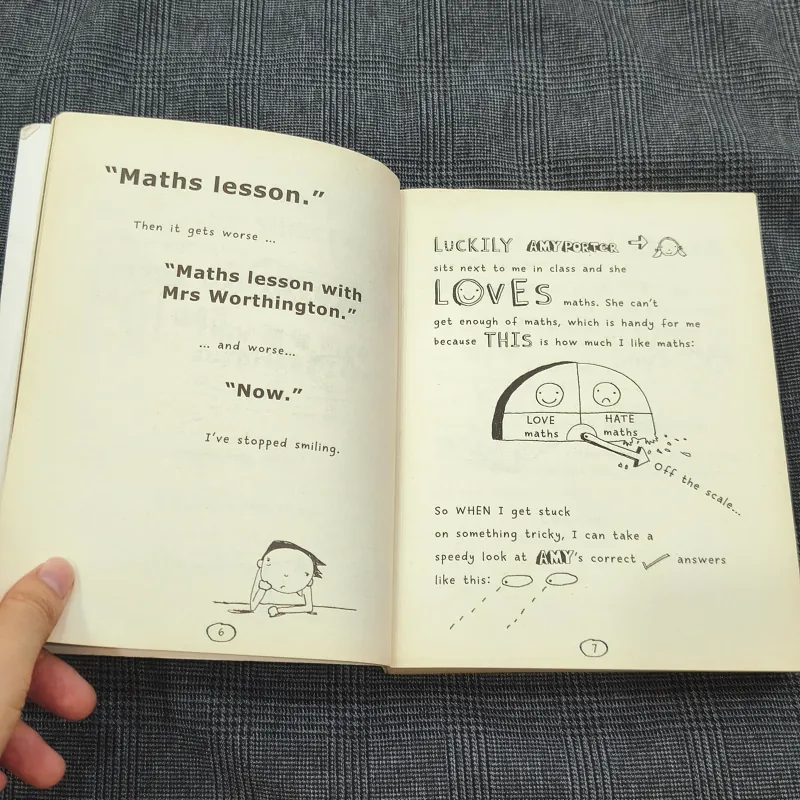 “Maths lesson.”
Then it gets worse ...
“Maths lesson with
Mrs Worthington.”
... and worse...
“Now.”
I’ve stopped smiling.
6
LUCKILY AMY PORTER
sits next to me in class and she
LOVES maths. She can’t
get enough of maths, which is handy for me
because THIS is how much I like maths:
LOVE
maths
HATE
maths
Off the scale...
So WHEN I get stuck
on something tricky, I can take a
speedy look at AMY’s correct answers
like this:
7